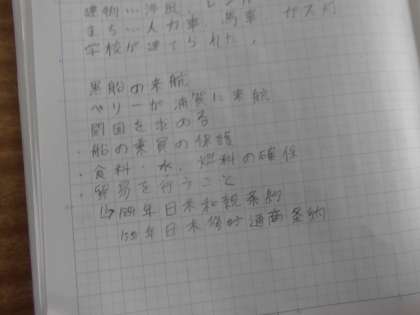 建物…洋風、レンガ
まち…人力車、馬車 ガス灯
学校が建てられた。
黒船の来航
ペリーが浦賀に来航
開国を求める
・船の乗員の保護
・食料、水、燃料の確保
・貿易を行うこと
年日米和親条約
年日米修好通商条約